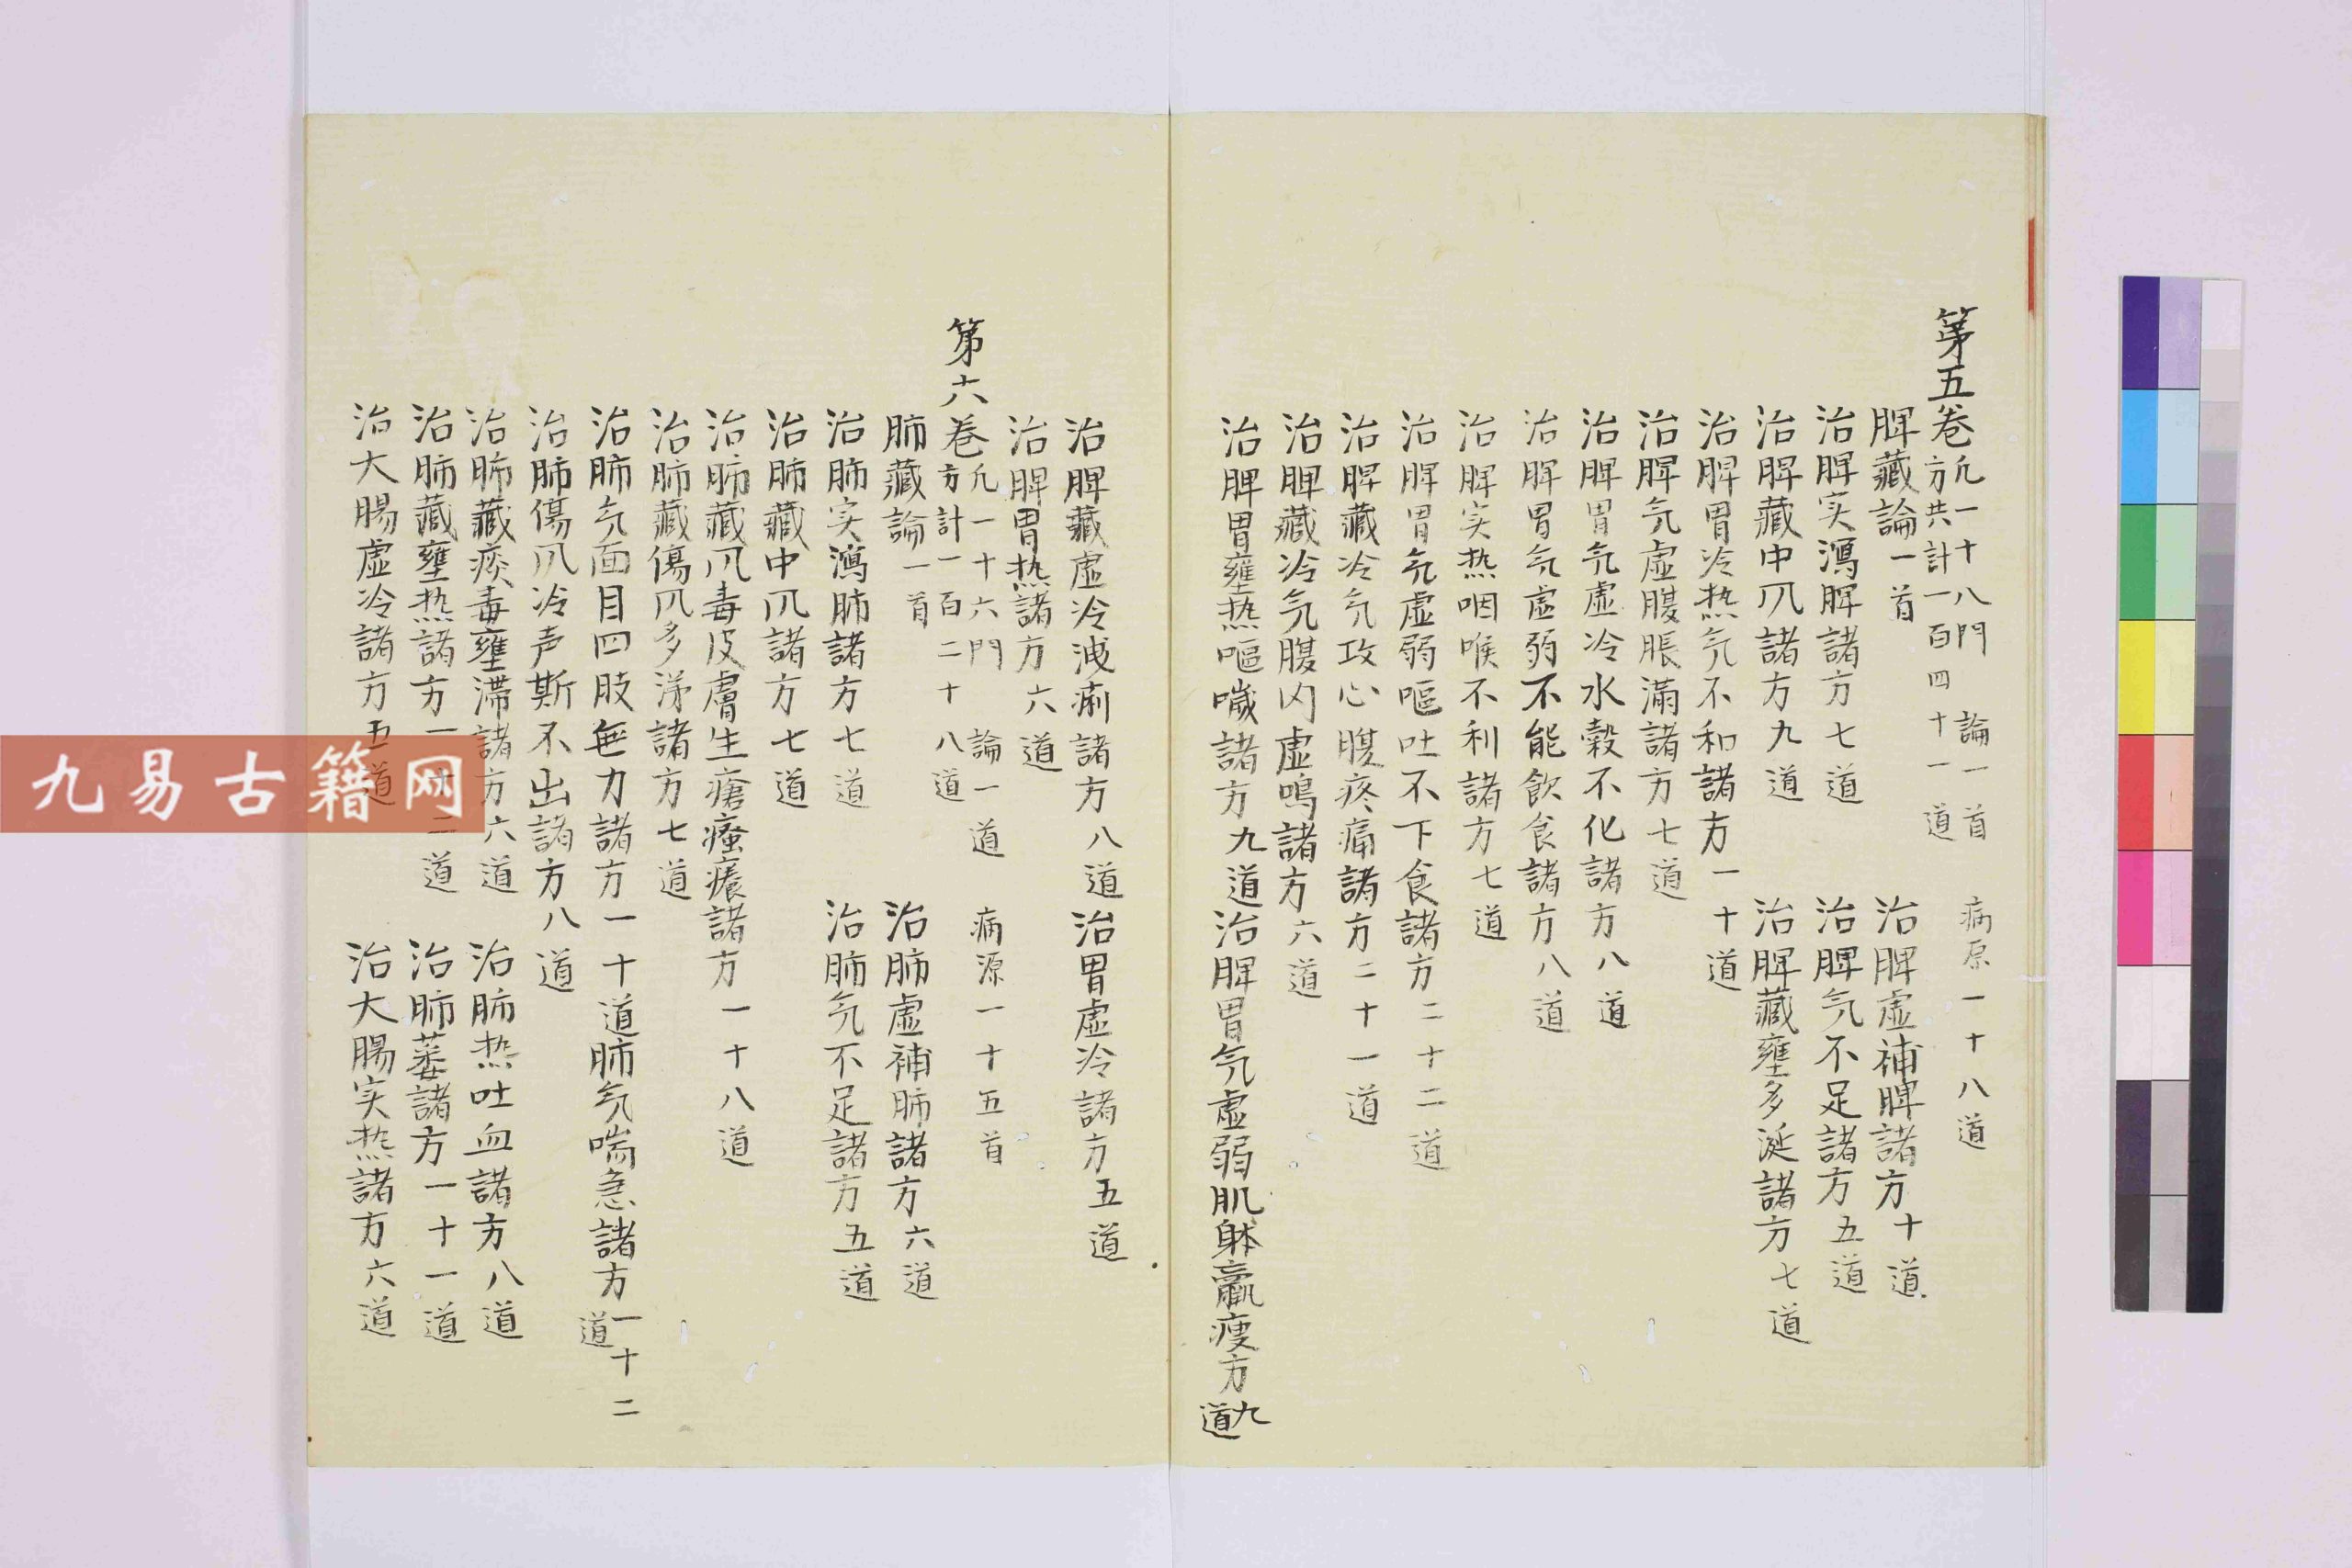 第五卷凡一十八門 論一首 病原一十八道
方共計一百四十一道
脾藏論一首 治脾虚補脾諸方十道
治脾实瀉脾諸方七道 治脾气不足諸方五道
治脾藏中风諸方九道 治脾藏壅多涎諸方七道
治脾胃冷热气不和諸方一十道
治脾气虚腹脹滿諸方七道
治脾胃气虚冷水穀不化諸方八道
治脾胃气虚弱不能飲食諸方八道
治脾实热咽喉不利諸方七道
治脾胃气虚弱嘔吐不下食諸方二十二道
治脾藏冷气攻心腹疼痛諸方二十一道
治脾藏冷气腹内虚鳴諸方六道
治脾胃壅热嘔噦諸方九道治脾胃气虚弱肌躰羸瘦方九道
治脾藏虚冷洩痢諸方八道治胃虚冷諸方五道
治脾胃热諸方六道
第六卷凡一十六門 論一道 病源一十五首
方計一百二十八道
肺藏論一首 治肺虚補肺諸方六道
治肺实瀉肺諸方七道 治肺气不足諸方五道
治肺藏中风諸方七道
治肺藏风毒皮膚生瘡瘙癢諸方一十八道
治肺藏傷风多涕諸方七道
治肺气面目四肢無力諸方一十道肺气喘急諸方一十二道
治肺傷风冷声斯不出諸方八道
治肺藏痰毒壅滞諸方六道 治肺热吐血諸方八道
治肺藏壅热諸方一十二道 治肺萎諸方一十一道
治大腸虚冷諸方五道 治大腸实热諸方六道
九易古籍网